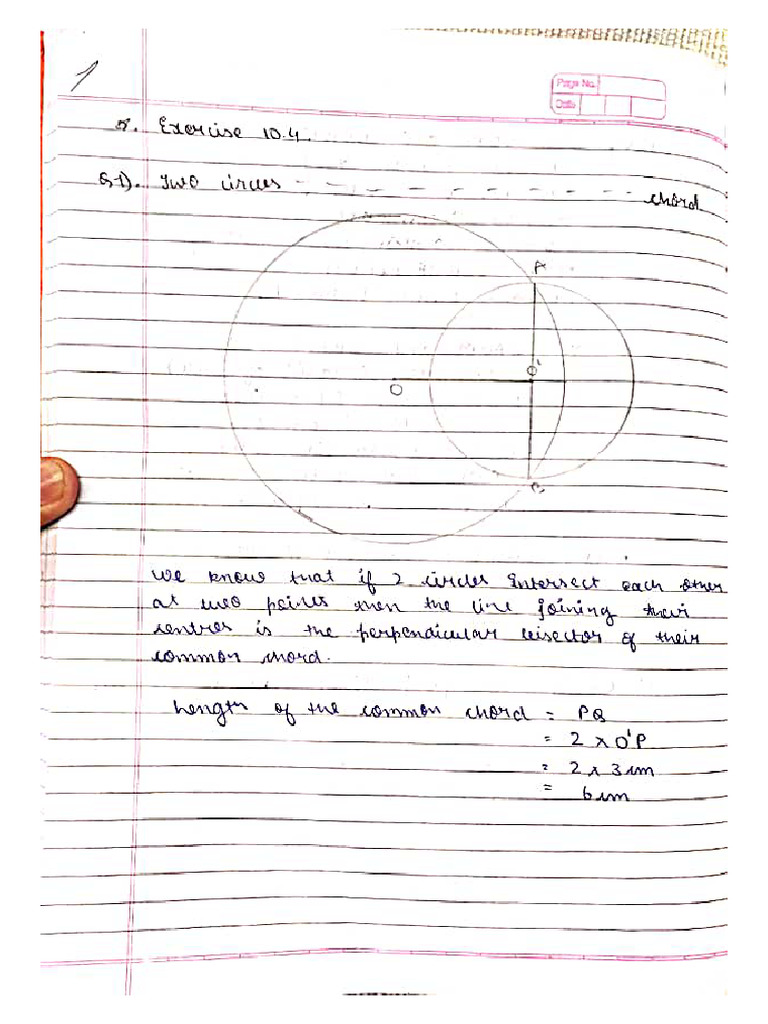 1
Page No.
Date
Exercise 10.4.
Q1). Two circles - - - - - - - - - - chord
A
O'
O
B
We know that if 2 circles intersect each other
at two points then the line joining their
centres is the perpendicular bisector of their
common chord.
Length of the common chord = PQ
= 2 x O'P
= 2 x 3 cm
= 6 cm